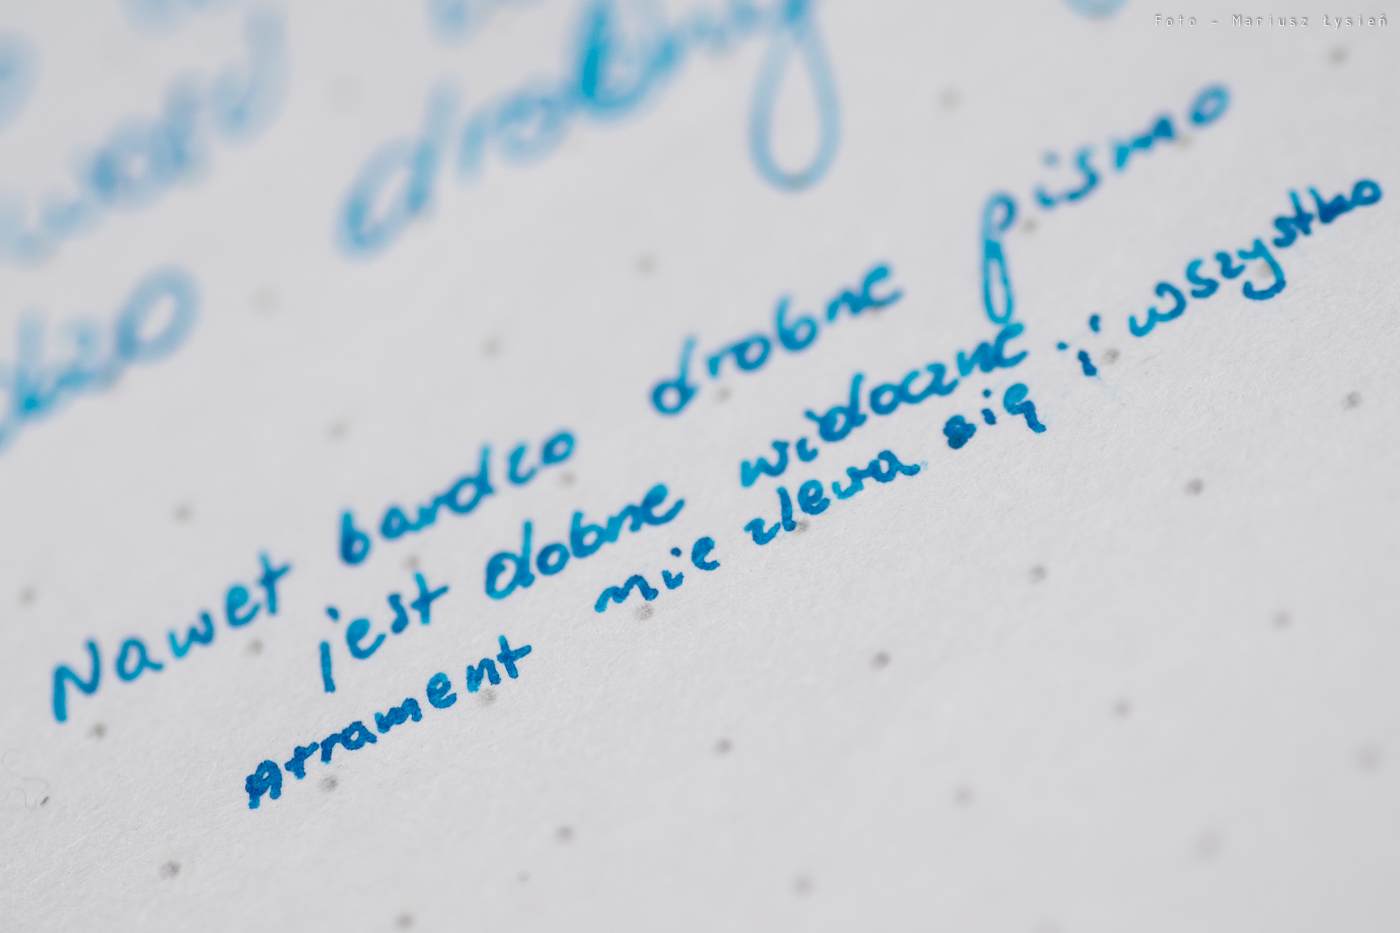 Foto - Mariusz Łysień
drobny
Nawet bardzo drobne pismo
jest dobne widoczne i wszystko
Atrament nie zlewa się